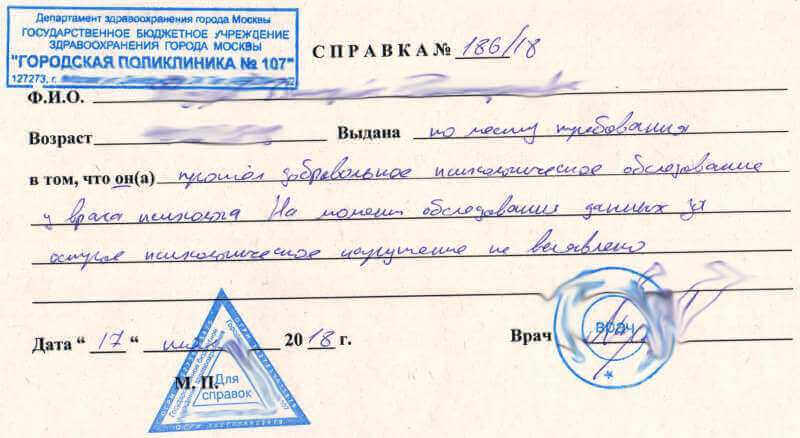 Департамент здравоохранения города Москвы
ГОСУДАРСТВЕННОЕ БЮДЖЕТНОЕ УЧРЕЖДЕНИЕ
ЗДРАВООХРАНЕНИЯ ГОРОДА МОСКВЫ
"ГОРОДСКАЯ ПОЛИКЛИНИКА № 107"
127273, г.
СПРАВКА № 186/18
Ф.И.О.
Возраст Выдана по месту требования
в том, что он(а) прошел добровольное психологическое обследование
у врача психолога На момент обследования данных за
острое психологическое нарушение не выявлено
Дата " 17 " 2018 г. Врач
врач
М. П.
Для
справок
107